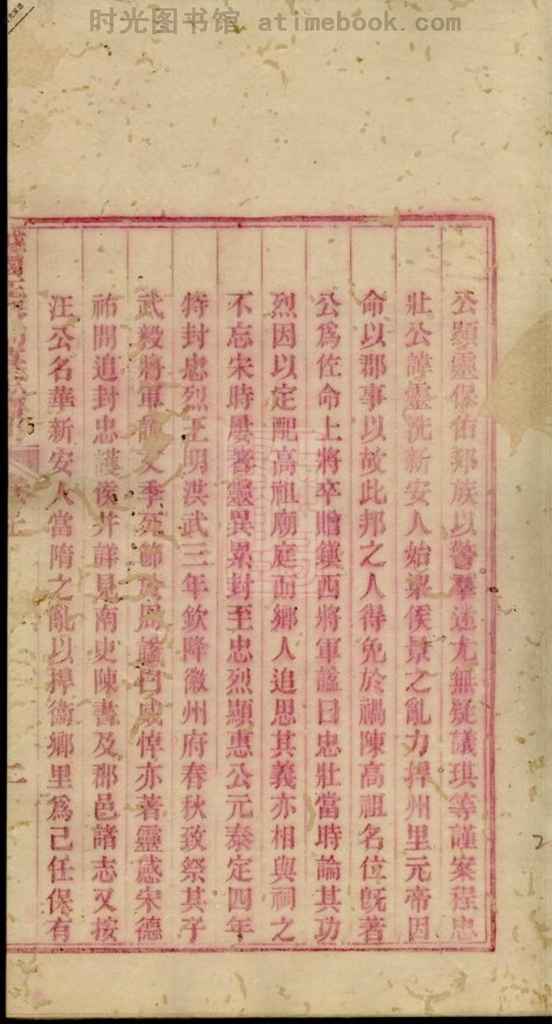 时光图书馆 atimebook.com
公顯靈保佑邦族以警羣迷尤無疑議琪等謹案程忠
壯公諱靈洗新安人始梁侯景之亂力捍州里元帝因
命以郡事以故此邦之人得免於禍陳高祖名位旣著
公爲佐命上將卒贈鎭西將軍諡曰忠壯當時論其功
烈因以定配高祖廟庭而鄉人追思其義亦相與祠之
不忘宋時屢著靈異累封至忠烈顯惠公元泰定四年
特封忠烈王明洪武三年欽降徽州府春秋致祭其子
武毅將軍諱文季死節於周諡曰威悼亦著靈感宋德
祐間追封忠護侯幷詳見南史陳書及郡邑諸志又按
汪公名華新安人當隋之亂以捍衞鄉里爲己任保有
二
2